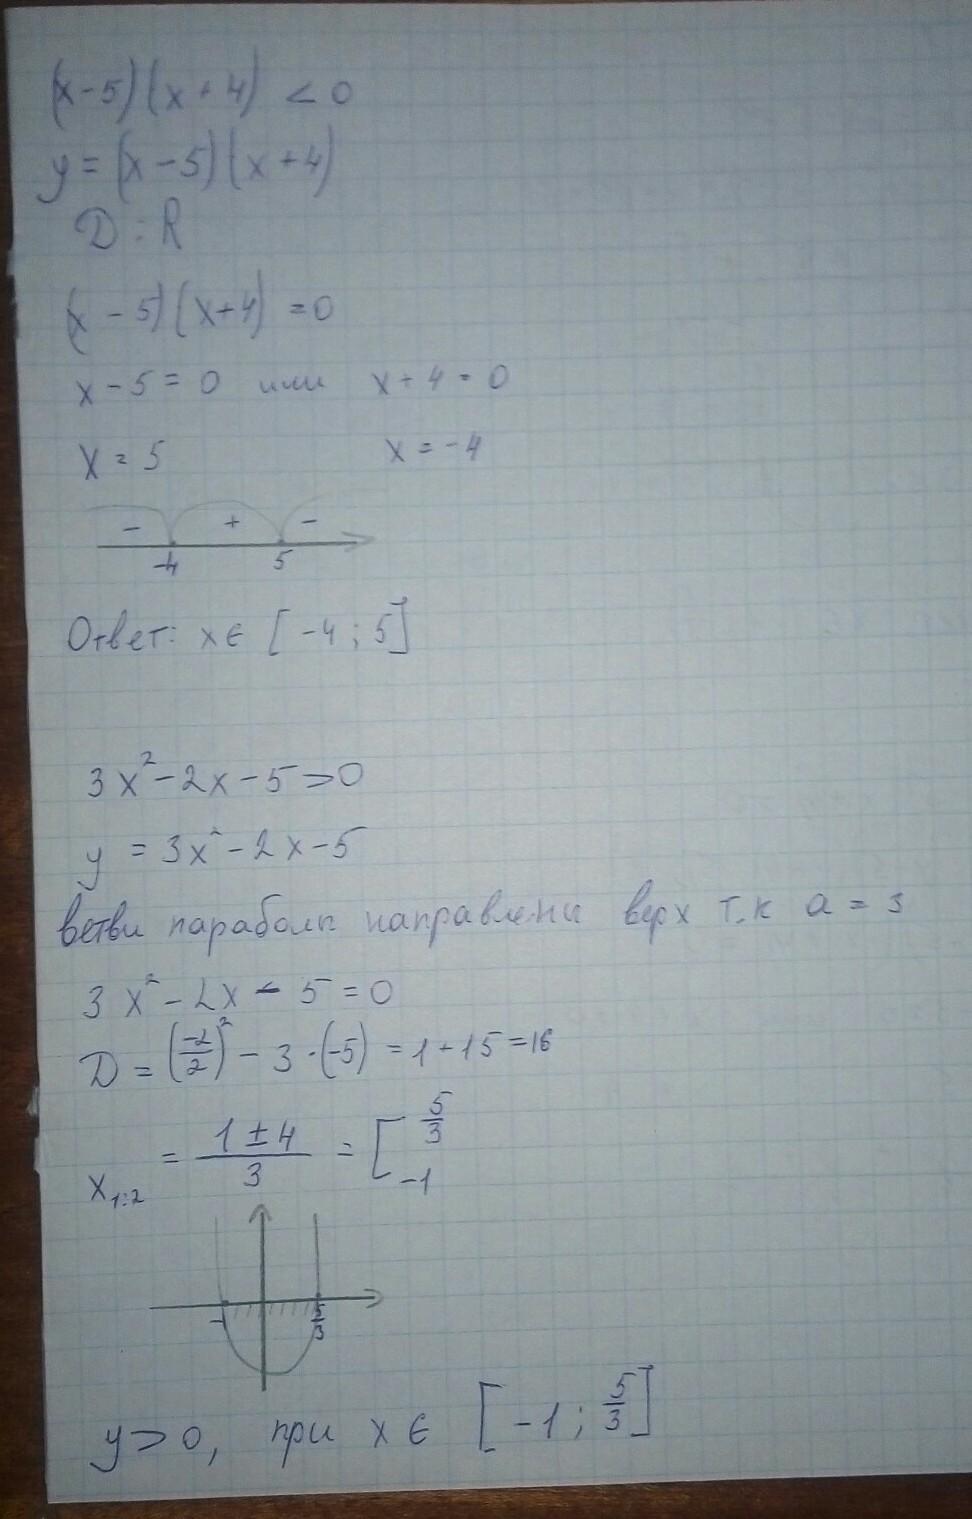 (x-5)(x+4) < 0
y = (x-5)(x+4)
D : R
(x-5)(x+4) = 0
x-5 = 0 или x+4 = 0
x = 5 x = -4
- + -
-4 5
Ответ: x ∈ [-4; 5]
3x² - 2x - 5 > 0
y = 3x² - 2x - 5
ветви параболы направлени верх т.к a = 3
3x² - 2x - 5 = 0
D = (-2/2)² - 3·(-5) = 1+15 = 16
x₁;₂ = (1 ± 4)/3 = [ 5/3 -1
-1 5/3
y > 0, при x ∈ [-1; 5/3]